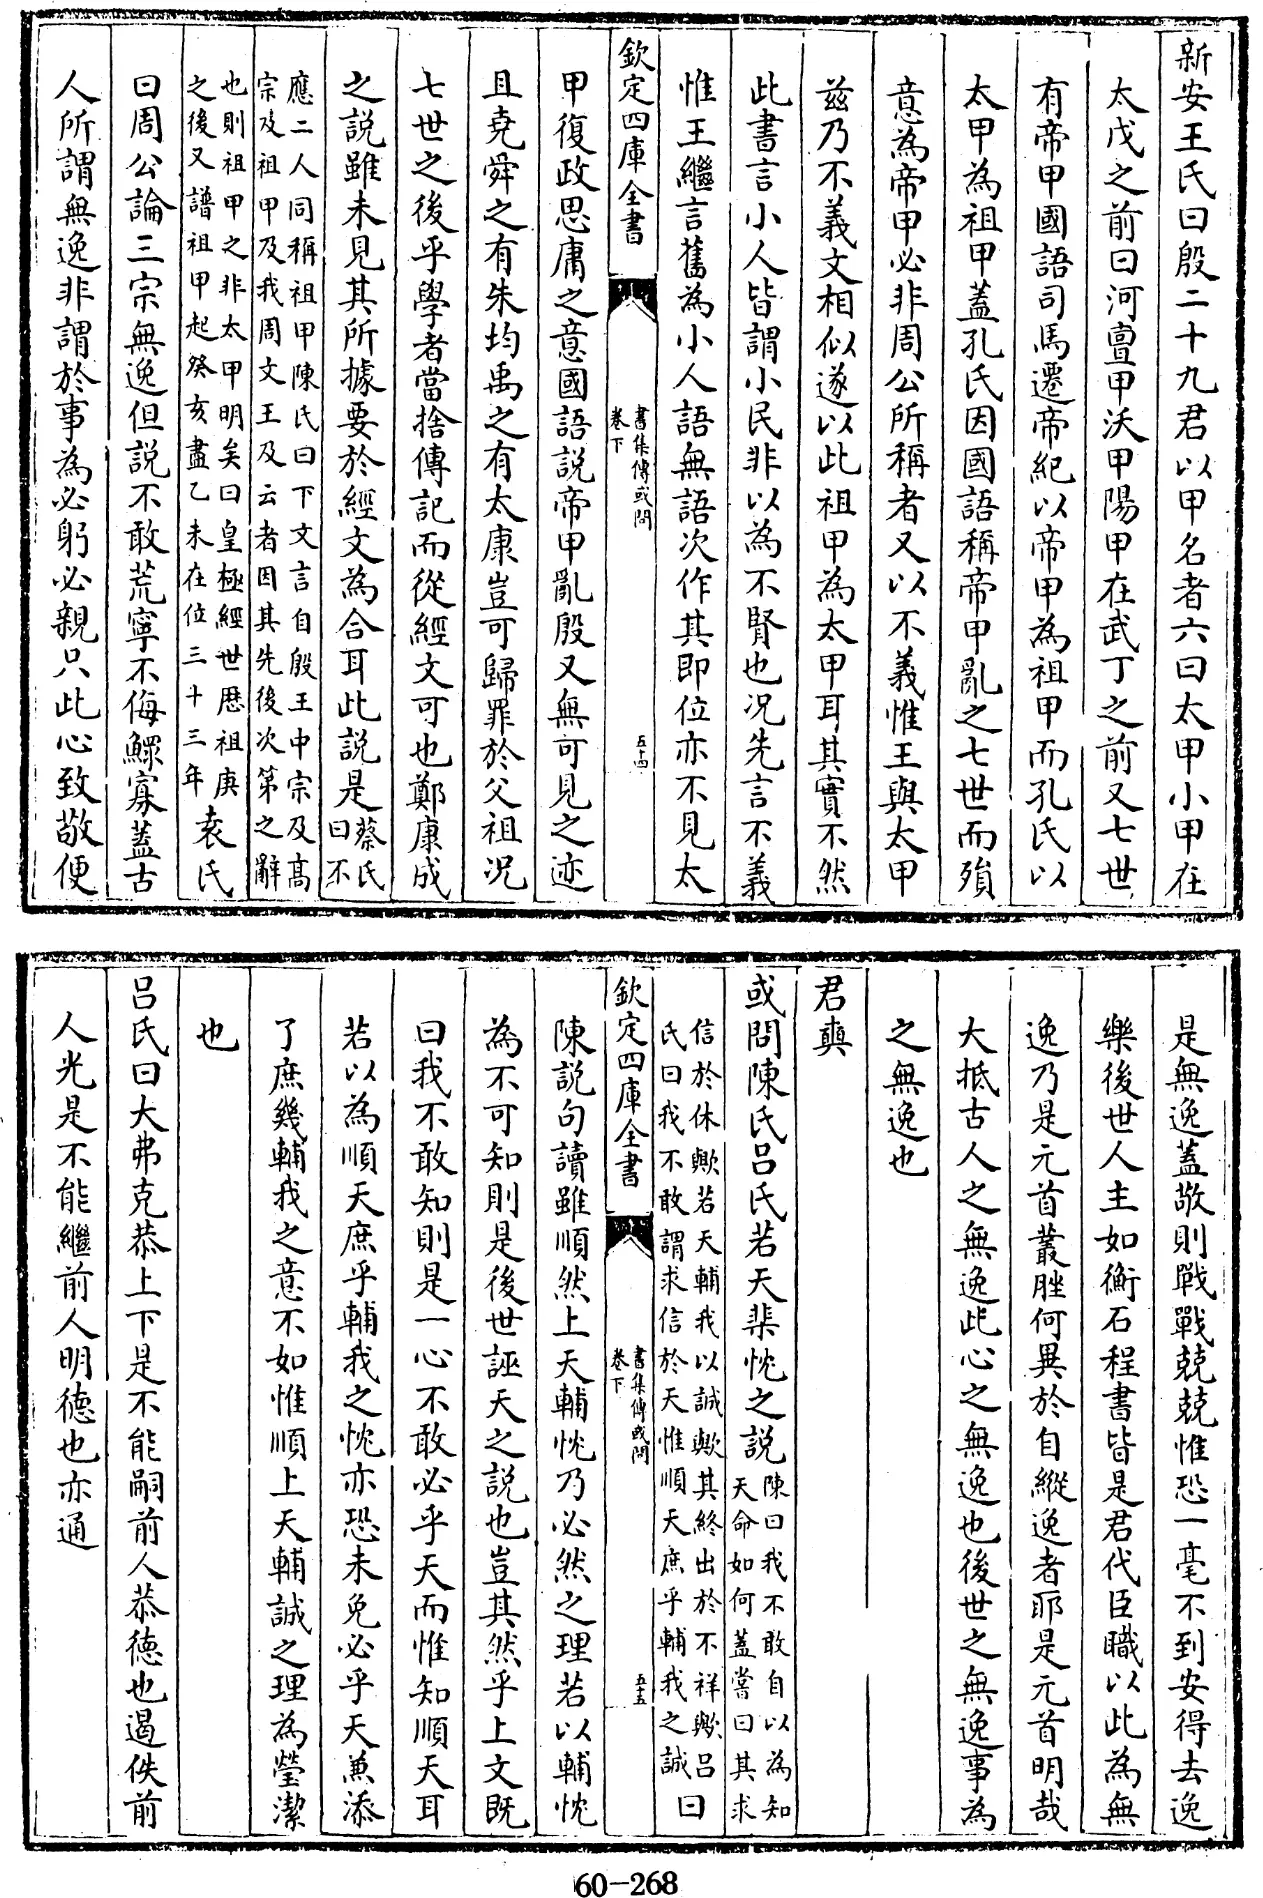 新安王氏曰殷二十九君以甲名者六曰太甲小甲在
太戊之前曰河亶甲沃甲陽甲在武丁之前又七世
有帝甲國語司馬遷帝紀以帝甲為祖甲而孔氏以
太甲為祖甲蓋孔氏因國語稱帝甲亂之七世而殞
意為帝甲必非周公所稱者又以不義惟王與太甲
兹乃不義文相似遂以此祖甲為太甲耳其實不然
此書言小人皆謂小民非以為不賢也况先言不義
惟王繼言舊為小人語無語次作其即位亦不見太
欽定四庫全書
書集傳或問
卷下
五十四
甲復政思庸之意國語説帝甲亂殷又無可見之迹
且堯舜之有朱均禹之有太康豈可歸罪於父祖况
七世之後乎學者當捨傳記而從經文可也鄭康成
之説雖未見其所據要於經文為合耳此説是
蔡氏
曰不
應二人同稱祖甲陳氏曰下文言自殷王中宗及髙
宗及祖甲及我周文王及云者因其先後次第之辭
也則祖甲之非太甲明矣曰皇極經世厯祖庚
之後又譜祖甲起癸亥盡乙未在位三十三年
袁氏
曰周公論三宗無逸但説不敢荒寧不侮鰥寡蓋古
人所謂無逸非謂於事為必躬必親只此心致敬便
是無逸蓋敬則戰戰兢兢惟恐一毫不到安得去逸
樂後世人主如衡石程書皆是君代臣職以此為無
逸乃是元首叢脞何異於自縱逸者耶是元首明哉
大抵古人之無逸此心之無逸也後世之無逸事為
之無逸也
君奭
或問陳氏吕氏若天棐忱之説
陳曰我不敢自以為知
天命如何蓋嘗曰其求
信於休歟若天輔我以誠歟其終出於不祥歟吕
氏曰我不敢謂求信於天惟順天庶乎輔我之誠
曰
欽定四庫全書
書集傳或問
卷下
五十五
陳説句讀雖順然上天輔忱乃必然之理若以輔忱
為不可知則是後世誣天之説也豈其然乎上文既
曰我不敢知則是一心不敢必乎天而惟知順天耳
若以為順天庶乎輔我之忱亦恐未免必乎天兼添
了庶幾輔我之意不如惟順上天輔誠之理為瑩潔
也
吕氏曰大弗克恭上下是不能嗣前人恭徳也遏佚前
人光是不能繼前人明徳也亦通
60-268